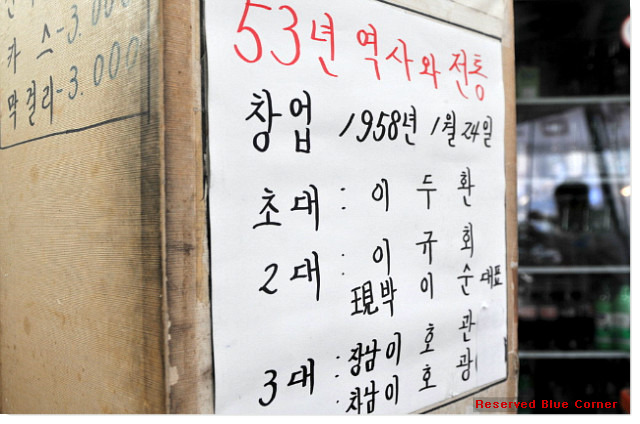 카스-3.000
막걸리-3.000
53년 역사와 전통
창업 1958년 1월 24일
초대 : 이두환
2대 : 이규회
現박이순대표
3대 : 장남 이호관
차남 이호광
Reserved Blue Corner